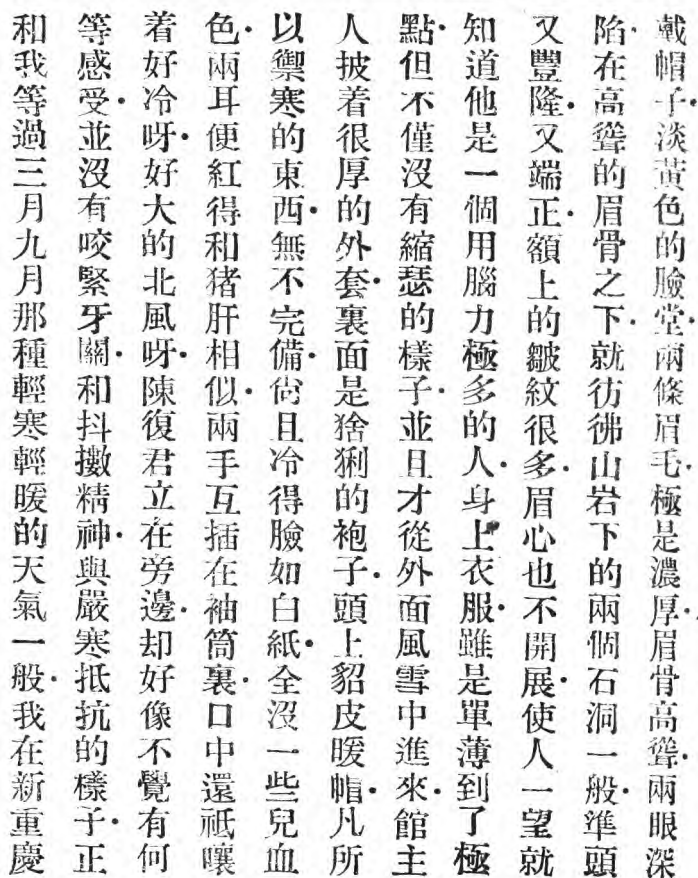 戴帽子．淡黃色的臉堂．兩條眉毛．極是濃厚．眉骨高聳．兩眼深
陷．在高聳的眉骨之下．就彷彿山岩下的兩個石洞一般．準頭
又豐隆．又端正．額上的皺紋很多．眉心也不開展．使人一望就
知道他是一個用腦力極多的人．身上衣服．雖是單薄到了極
點．但不僅沒有縮瑟的樣子．並且才從外面風雪中進來．館主
人披着很厚的外套．裏面是猞猁的袍子．頭上貂皮暖帽．凡所
以禦寒的東西．無不完備．尙且冷得臉如白紙．全沒一些兒血
色．兩耳便紅得和猪肝相似．兩手互插在袖筒裏．口中還祗嚷
着好冷呀．好大的北風呀．陳復君立在旁邊．却好像不覺有何
等感受．並沒有咬緊牙關．和抖擻精神．與嚴寒抵抗的樣子．正
和我等過三月九月那種輕寒輕暖的天氣一般．我在新重慶